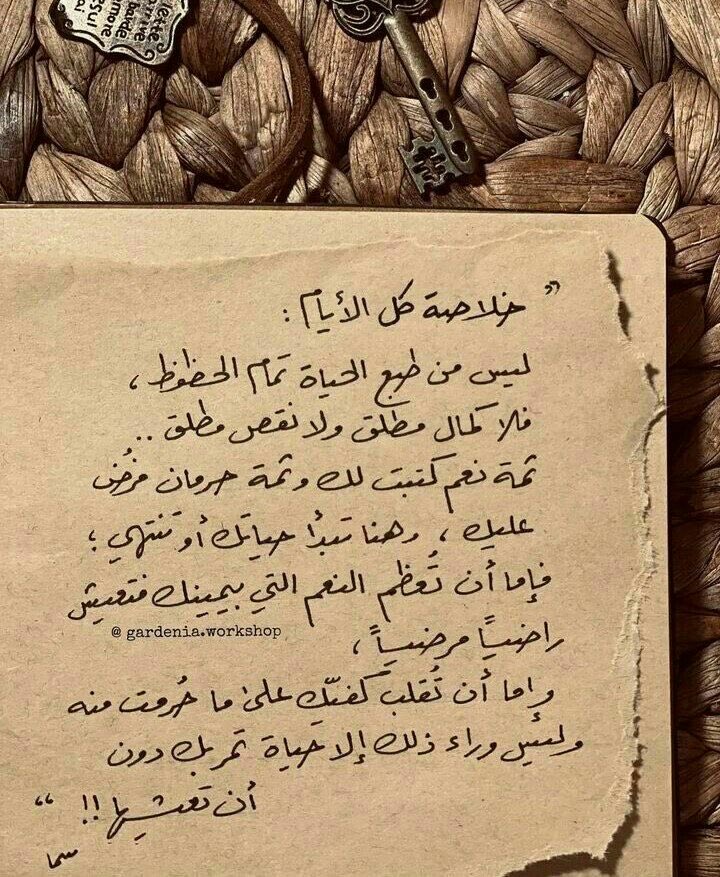 " خلاصة كل الأيام :
ليس من طبع الحياة تمام الحظوظ ،
فلا كمال مطلق ولا نقص مطلق ..
ثمة نعم كتبت لك وثمة حرمان فُرض
عليك ، وهنا تبدأ حياتك أو تنتهي ؛
فإما أن تُعظم النعم التي بيمينك فتعيش
@ gardenia.workshop
راضياً مرضياً ،
وإما أن تُقلب كفيّك على ما حُرمت منه
وليس وراء ذلك إلا حياة تمر بك دون
أن تعيشها !! "
سما